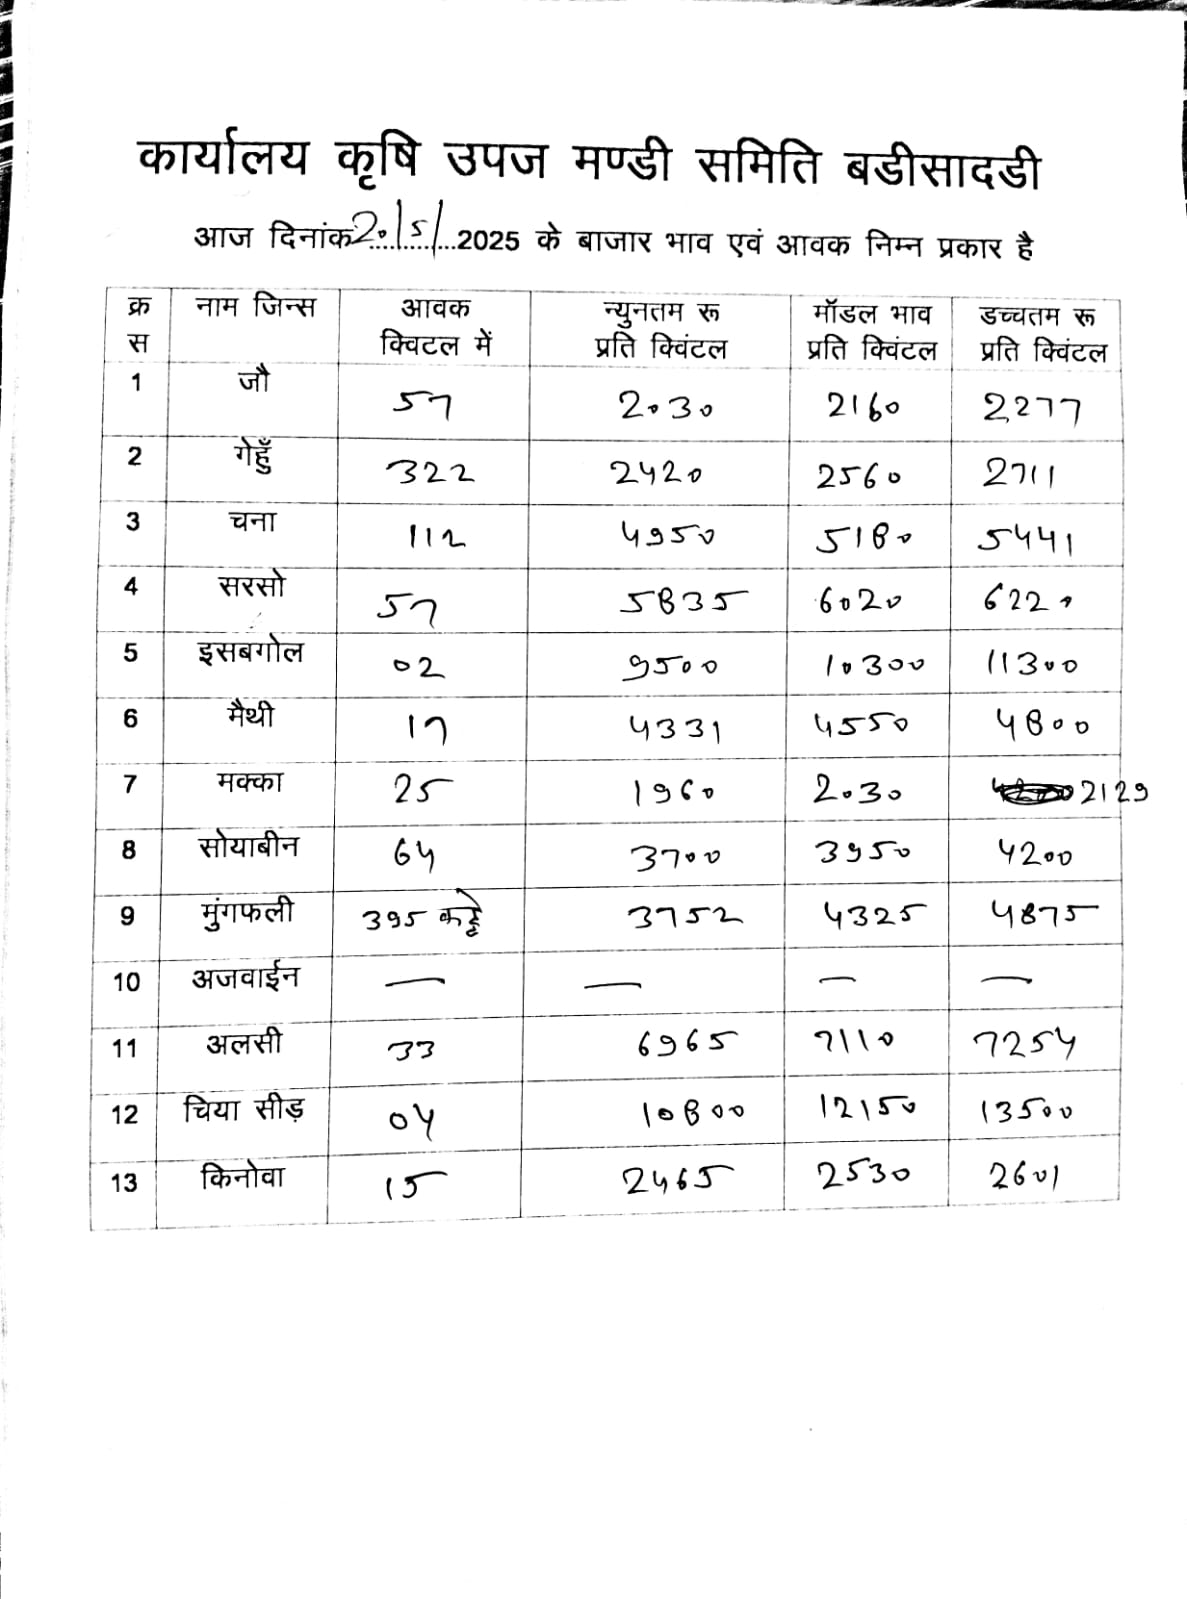 कार्यालय कृषि उपज मण्डी समिति बडीसादडी
आज दिनांक 20/5/2025 के बाजार भाव एवं आवक निम्न प्रकार है
क्र स | नाम जिन्स | आवक क्विटल में | न्युनतम रू प्रति क्विंटल | मॉडल भाव प्रति क्विंटल | डच्चतम रू प्रति क्विंटल
1 जौ 57 2030 2160 2277
2 गेहुँ 322 2420 2560 2711
3 चना 112 4950 5180 5441
4 सरसो 57 5835 6020 6220
5 इसबगोल 02 9500 10300 11300
6 मैथी 17 4331 4550 4800
7 मक्का 25 1960 2030 2129
8 सोयाबीन 64 3700 3950 4200
9 मुंगफली 395 कट्टे 3752 4325 4875
10 अजवाईन — — — —
11 अलसी 33 6965 7110 7254
12 चिया सीड़ 04 10800 12150 13500
13 किनोवा 15 2465 2530 2601